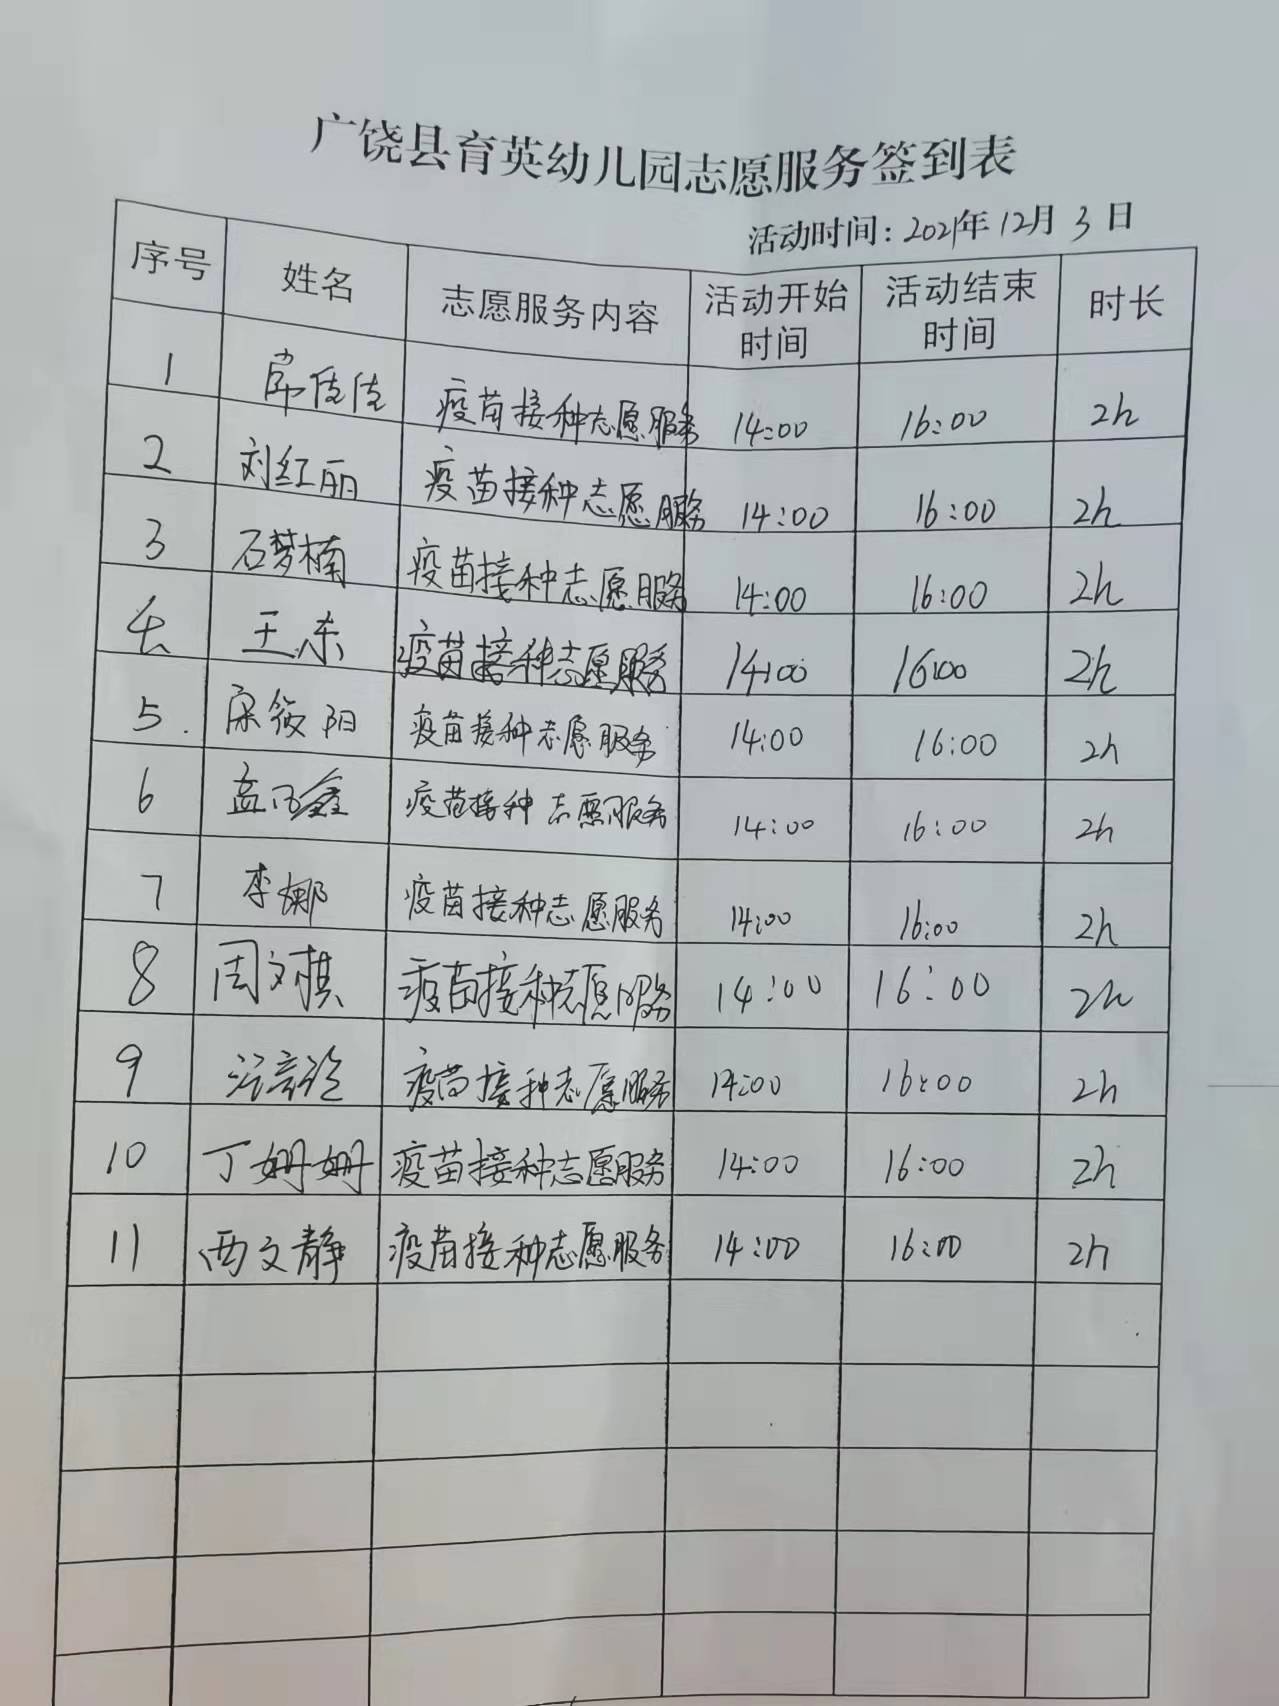 广饶县育英幼儿园志愿服务签到表
活动时间：2021年12月3日
序号 姓名 志愿服务内容 活动开始时间 活动结束时间 时长
1 佳佳 疫苗接种志愿服务 14:00 16:00 2h
2 刘红丽 疫苗接种志愿服务 14:00 16:00 2h
3 石梦楠 疫苗接种志愿服务 14:00 16:00 2h
4 王东 疫苗接种志愿服务 14:00 16:00 2h
5. 宋筱阳 疫苗接种志愿服务 14:00 16:00 2h
6 孟 鑫 疫苗接种志愿服务 14:00 16:00 2h
7 李娜 疫苗接种志愿服务 14:00 16:00 2h
8 周文棋 疫苗接种志愿服务 14:00 16:00 2h
9 疫苗接种志愿服务 14:00 16:00 2h
10 丁姗姗 疫苗接种志愿服务 14:00 16:00 2h
11 西文静 疫苗接种志愿服务 14:00 16:00 2h